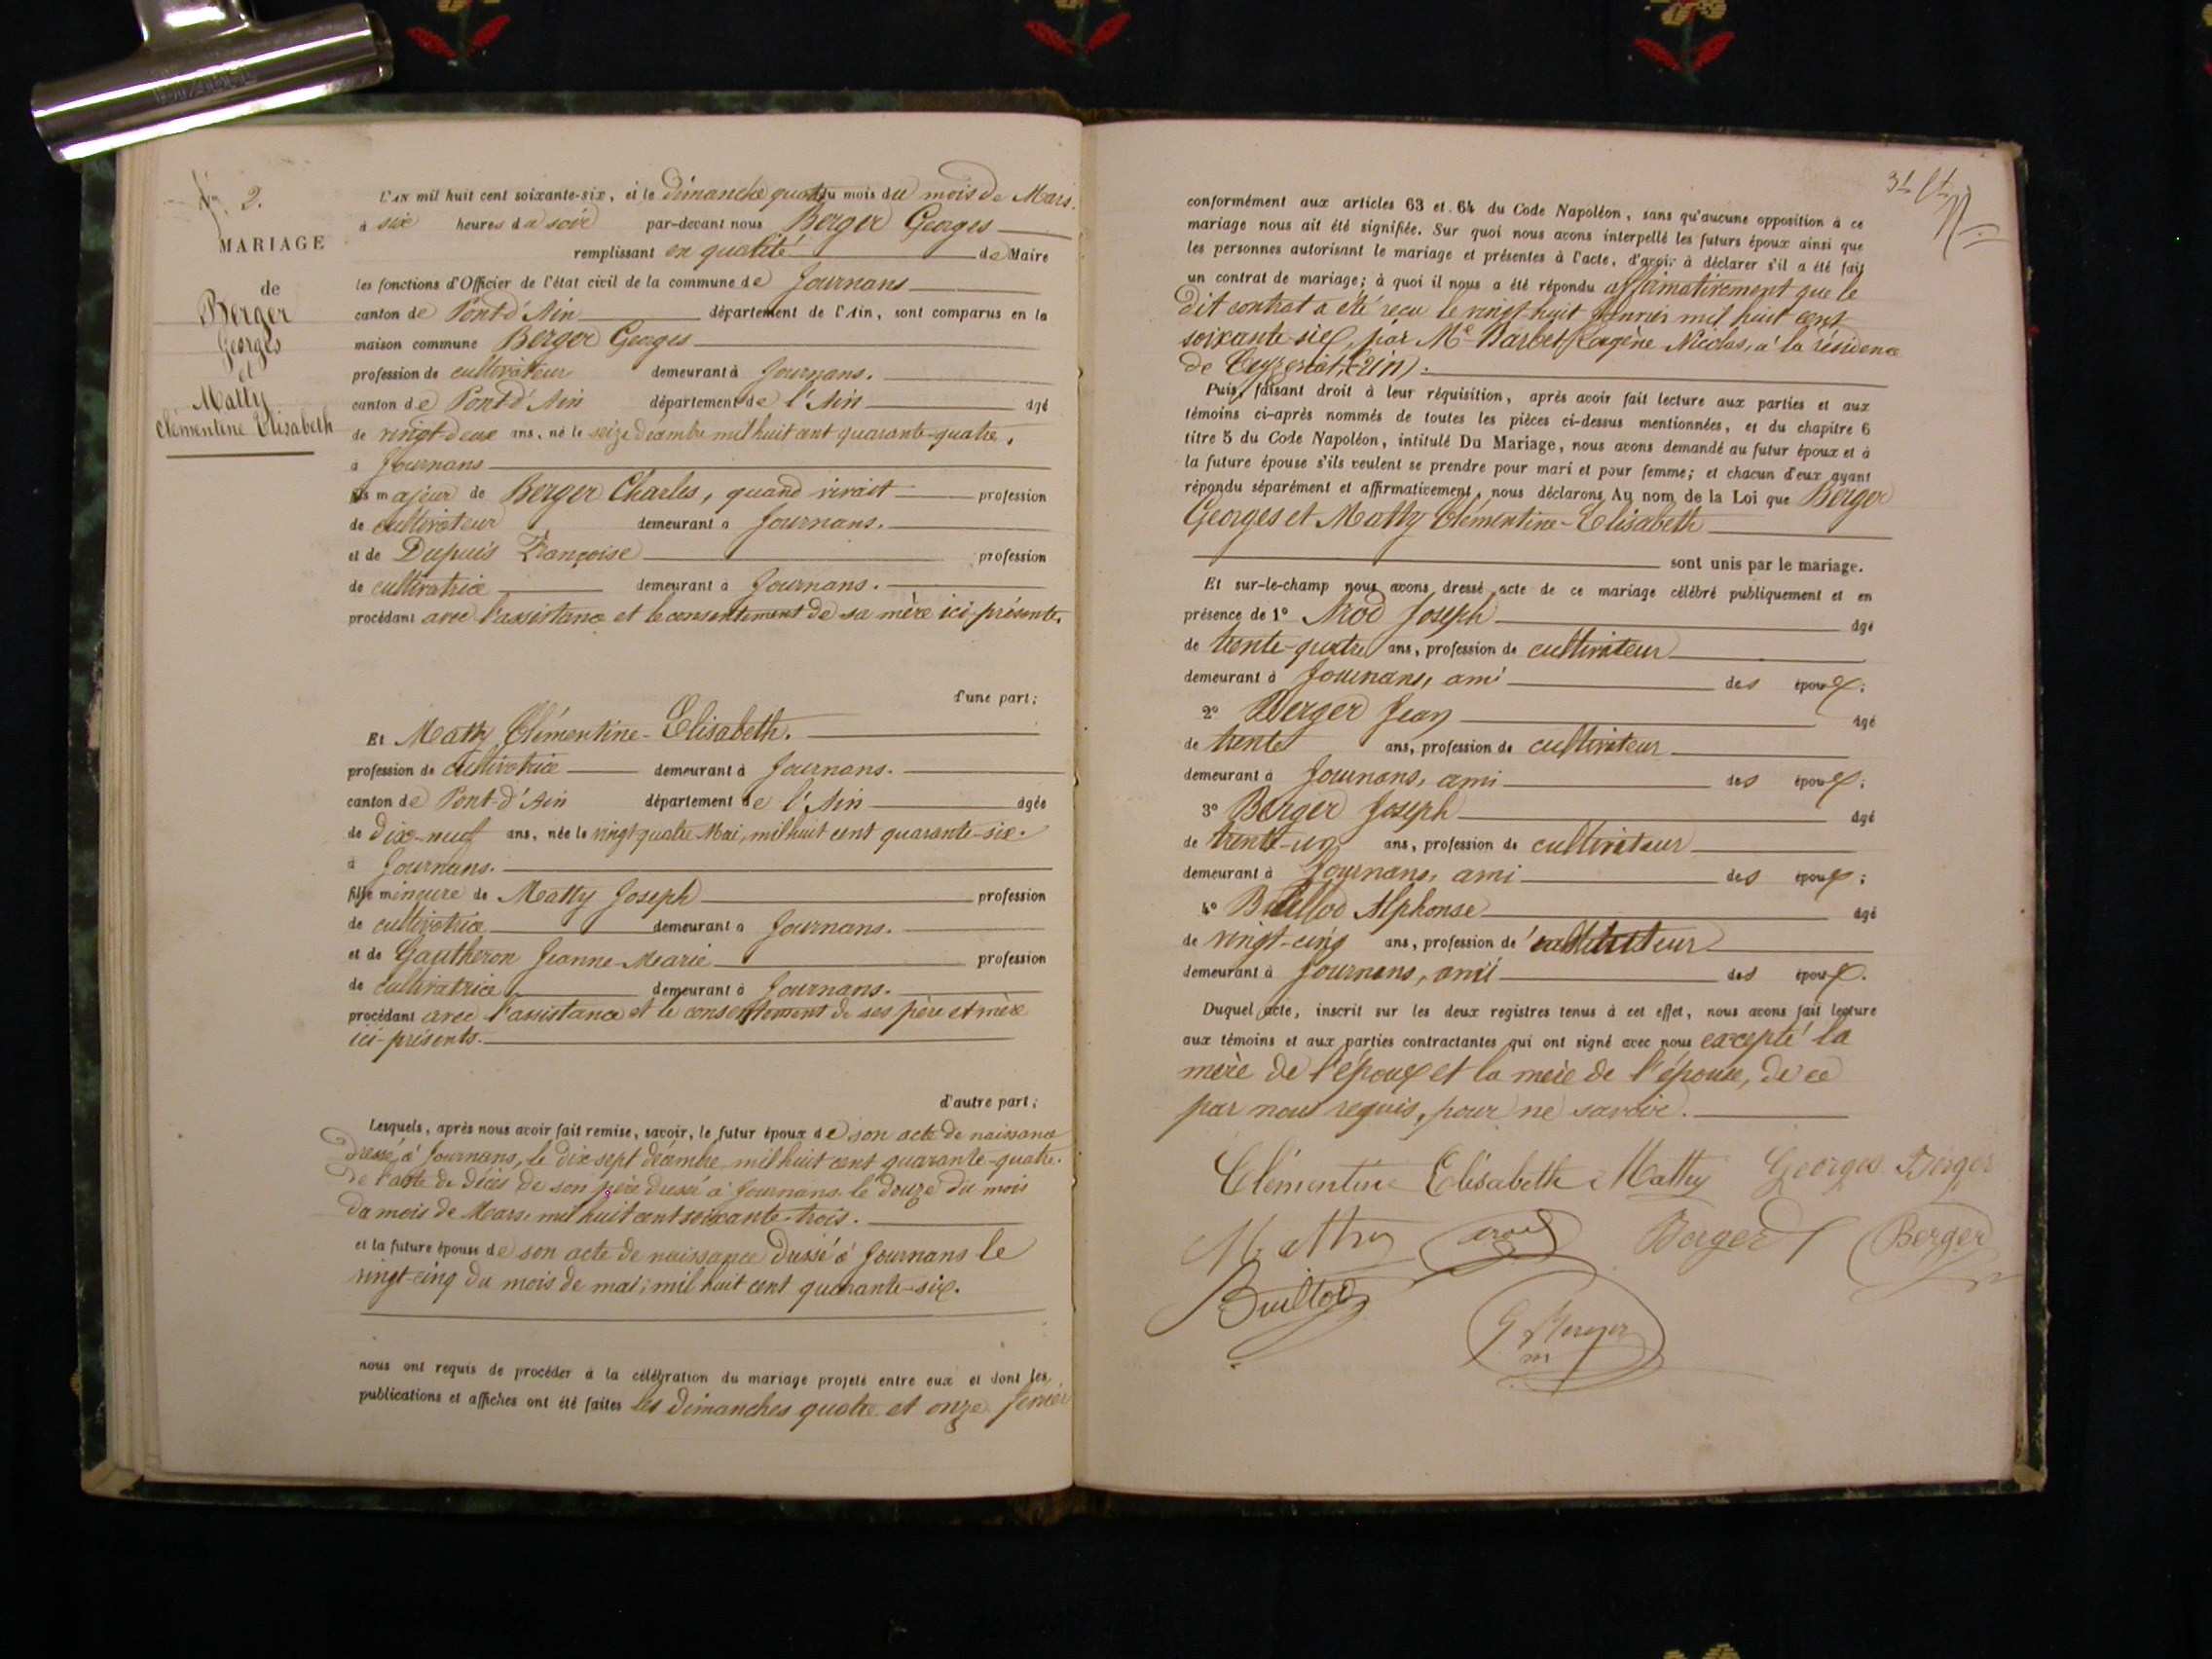 N° 2.
MARIAGE
de
Berger
Georges
et
Matty
Clémentine Elisabeth
L'AN mil huit cent soixante-six, et le dimanche quatre du mois du mois de Mars.
à six heures du soir par-devant nous Berger Georges
remplissant en qualité de Maire
les fonctions d'Officier de l'état civil de la commune de Journans
canton de Pont-d'Ain département de l'Ain, sont comparus en la
maison commune Berger Georges
profession de cultivateur demeurant à Journans.
canton de Pont d'Ain département de l'Ain âgé
de vingt-deux ans, né le seize décembre mil huit cent quarante-quatre,
à Journans
fils majeur de Berger Charles, quand vivait profession
de cultivateur demeurant à Journans.
et de Dupuis Françoise profession
de cultivatrice demeurant à Journans.
procédant avec l'assistance et le consentement de sa mère ici-présente.
d'une part;
Et Mathy Clémentine-Elisabeth.
profession de cultivatrice demeurant à Journans.
canton de Pont-d'Ain département de l'Ain âgée
de dix-neuf ans, née le vingt quatre Mai, mil huit cent quarante-six.
à Journans.
fille mineure de Matty Joseph profession
de cultivatrice demeurant à Journans.
et de Gautheron Jeanne-Marie profession
de cultivatrice demeurant à Journans.
procédant avec l'assistance et le consentement de ses père et mère
ici-présents.
d'autre part;
Lesquels, après nous avoir fait remise, savoir, le futur époux de son acte de naissance
dressé à Journans, le dix sept décembre mil huit cent quarante-quatre.
De l'acte de décès de son père dressé à Journans le douze du mois
du mois de Mars, mil huit cent soixante-trois.
et la future épouse de son acte de naissance dressé à Journans le
vingt-cinq du mois de mai, mil huit cent quarante-six.
nous ont requis de procéder à la célébration du mariage projeté entre eux et dont les
publications et affiches ont été faites les dimanches quatre et onze
conformément aux articles 63 et 64 du Code Napoléon, sans qu'aucune opposition à ce
mariage nous ait été signifiée. Sur quoi nous avons interpellé les futurs époux ainsi que
les personnes autorisant le mariage et présentes à l'acte, d'avoir à déclarer s'il a été fait
un contrat de mariage; à quoi il nous a été répondu affirmativement que le
dit contrat a été reçu le vingt huit Janvier mil huit cent
soixante-six, par Me Barbet Eugène Nicolas, à la résidence
de Ceyzeriat (Ain).
Puis, faisant droit à leur réquisition, après avoir fait lecture aux parties et aux
témoins ci-après nommés de toutes les pièces ci-dessus mentionnées, et du chapitre 6
titre 5 du Code Napoléon, intitulé Du Mariage, nous avons demandé au futur époux et à
la future épouse s'ils veulent se prendre pour mari et pour femme; et chacun d'eux ayant
répondu séparément et affirmativement, nous déclarons Au nom de la Loi que Berger
Georges et Matty Clémentine-Elisabeth
sont unis par le mariage.
Et sur-le-champ nous avons dressé acte de ce mariage célébré publiquement et en
présence de 1° Arod Joseph âgé
de trente-quatre ans, profession de cultivateur
demeurant à Journans, ami des époux;
2° Berger Jean âgé
de trente ans, profession de cultivateur
demeurant à Journans, ami des époux;
3° Berger Joseph âgé
de trente-un ans, profession de cultivateur
demeurant à Journans, ami des époux;
4° Buillod Alphonse âgé
de vingt-cinq ans, profession de
demeurant à Journans, ami des époux.
Duquel acte, inscrit sur les deux registres tenus à cet effet, nous avons fait lecture
aux témoins et aux parties contractantes qui ont signé avec nous excepté la
mère de l'époux et la mère de l'épouse, de ce
par nous requis, pour ne savoir.
Clémentine Elisabeth Mathy Georges Berger
Mathy Arod Berger J Berger
Buillod
G Berger
m